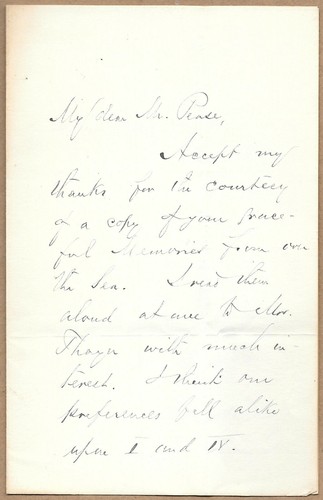 My dear Mr. Pease,
Accept my
thanks for the courtesy
of a copy of your grace-
ful Memories from over
the Sea. I read them
aloud at once to Mrs.
Thayer with much in-
terest. I think our
preferences fell alike
upon I and IV.